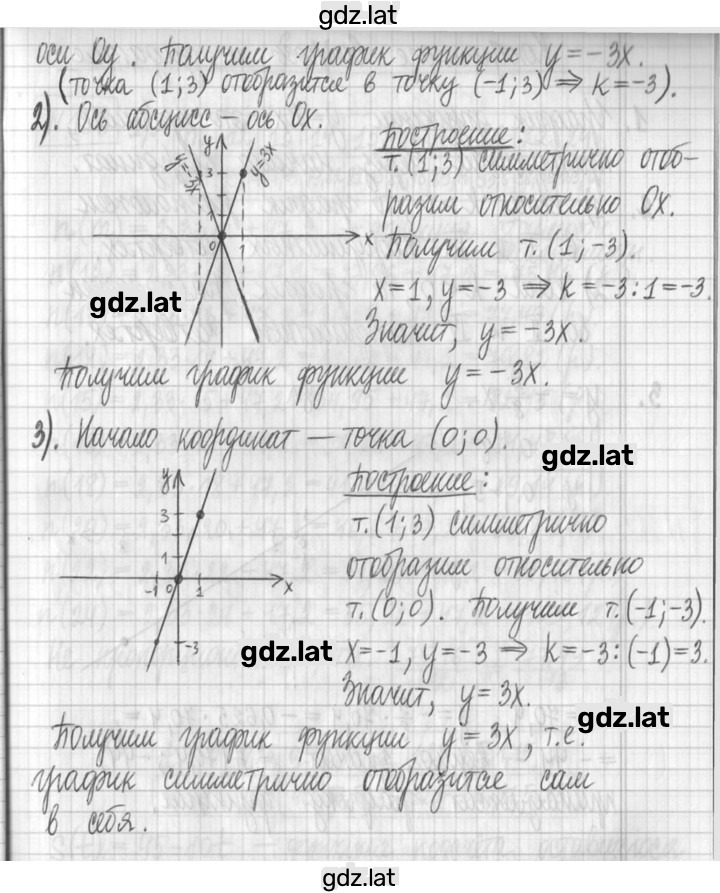 gdz.lat
оси Oy. Получим график функции y = -3x.
(точка (1;3) отобразится в точку (-1;3) ⇒ k = -3).
2). Ось абсцисс – ось Ox.
y
y=-3x
y=3x
3
1
0
1
x
Построение:
т.(1;3) симметрично отоб-
разим относительно Ox.
Получим т.(1;-3).
x=1, y=-3 ⇒ k=-3:1=-3.
Значит, y=-3x.
gdz.lat
Получим график функции y=-3x.
3). Начало координат – точка (0;0).
gdz.lat
y
3
1
-1
0
1
x
-3
Построение:
т.(1;3) симметрично
отобразим относительно
т.(0;0). Получим т.(-1;-3).
x=-1, y=-3 ⇒ k=-3:(-1)=3.
Значит, y=3x.
gdz.lat
gdz.lat
Получим график функции y=3x, т.е.
график симметрично отобразится сам
в себя.
gdz.lat